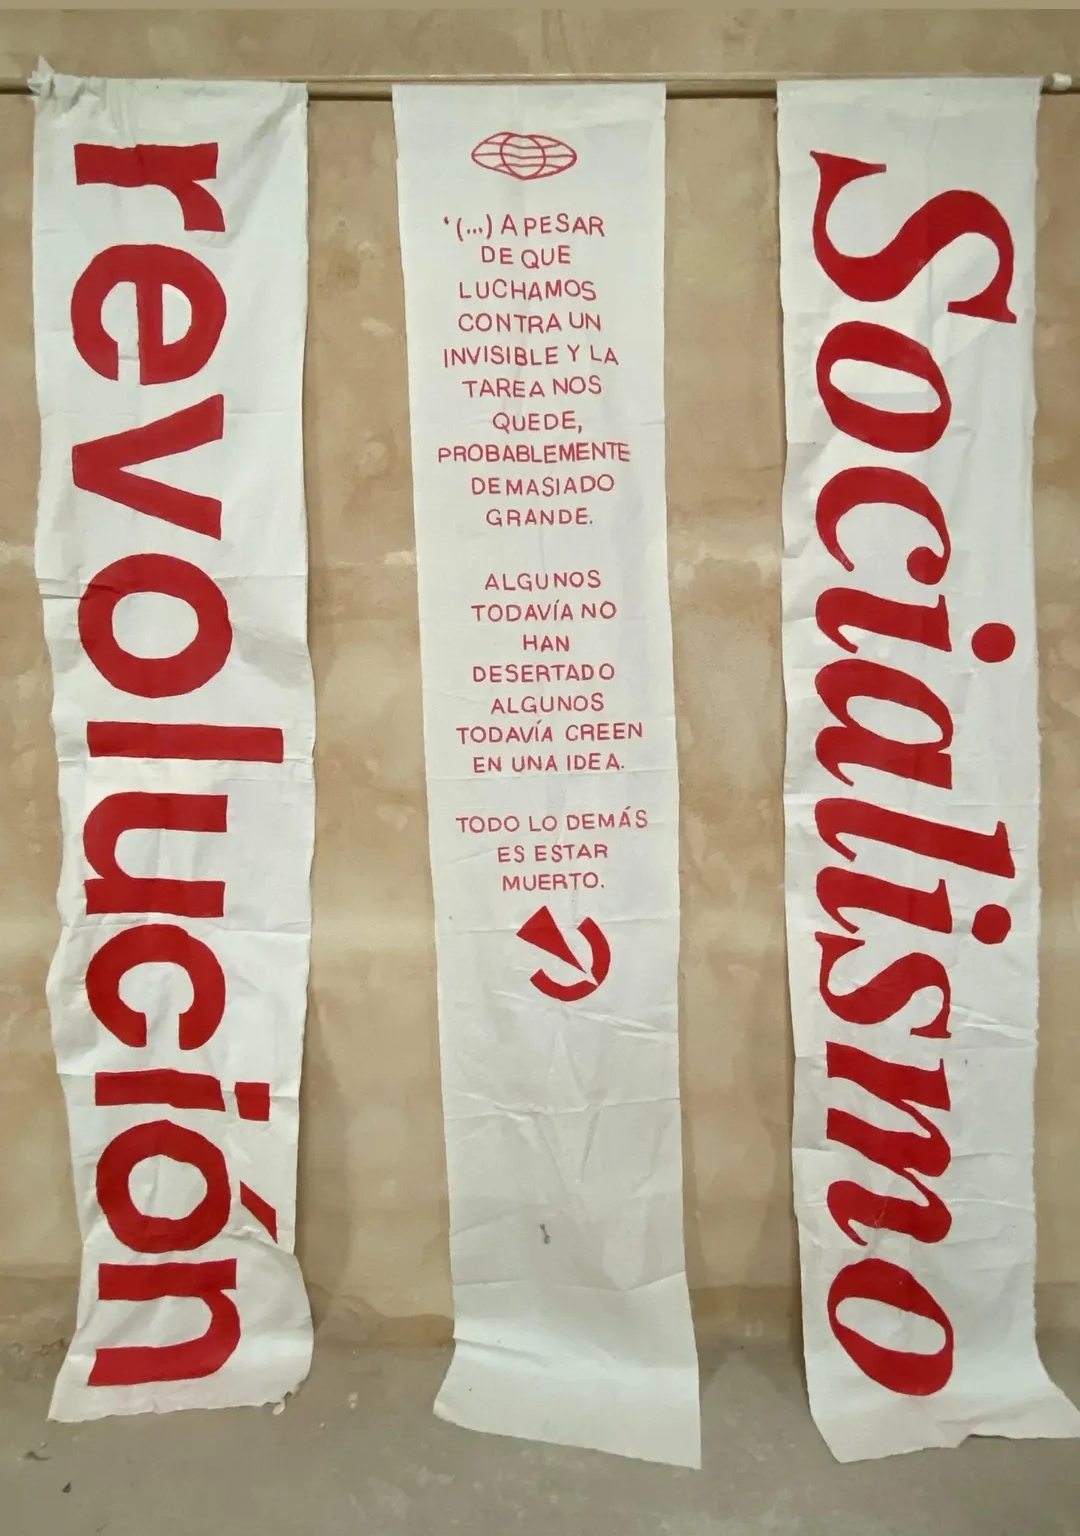 revolución
‘(...) A PESAR
DE QUE
LUCHAMOS
CONTRA UN
INVISIBLE Y LA
TAREA NOS
QUEDE,
PROBABLEMENTE
DEMASIADO
GRANDE.
ALGUNOS
TODAVÍA NO
HAN
DESERTADO
ALGUNOS
TODAVÍA CREEN
EN UNA IDEA.
TODO LO DEMÁS
ES ESTAR
MUERTO.
Socialismo